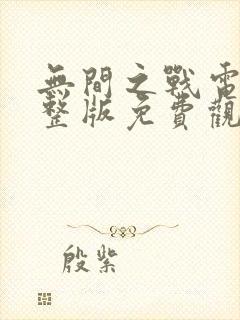 無間之戰電
整版免費觀
殷紫